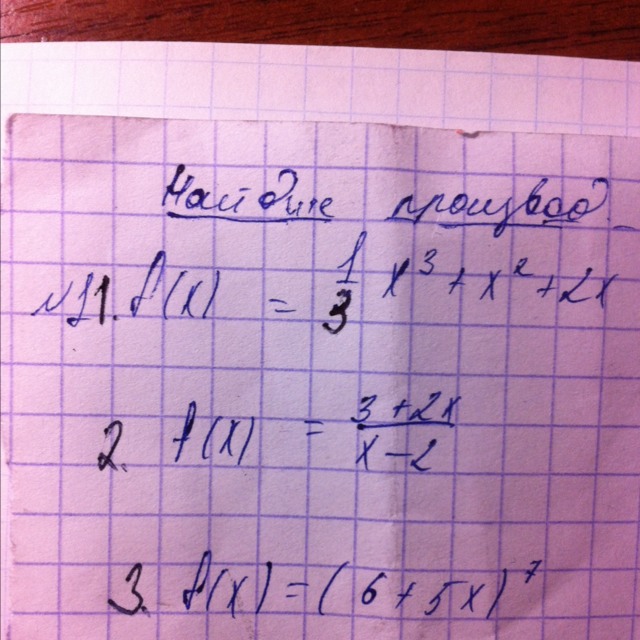 Найдите производ.
№1. f(x) = 1/3 x³ + x² + 2x
2. f(x) = (3+2x)/(x-2)
3. f(x) = (6+5x)⁷